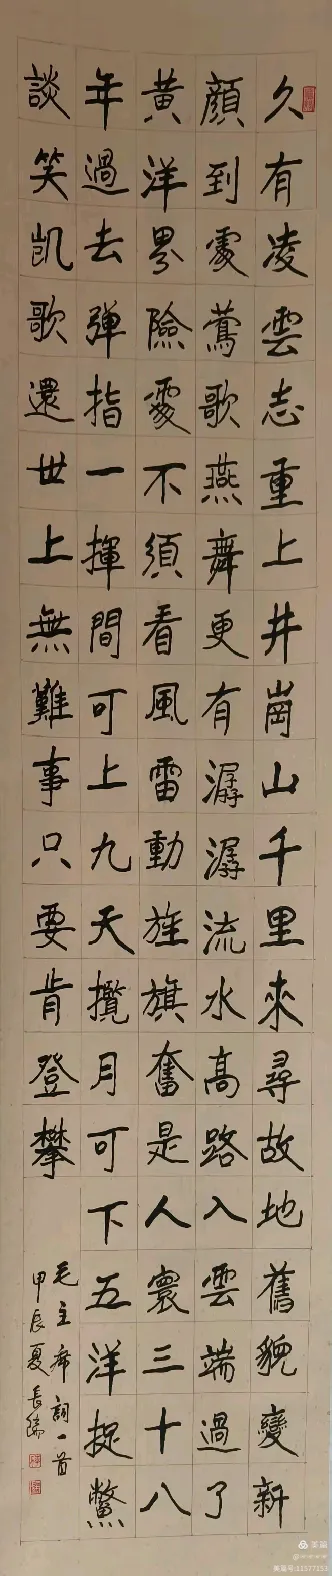 久有凌雲志重上井崗山千里來尋故地舊貌變新
顏到處鶯歌燕舞更有潺潺流水高路入雲端過了
黃洋界險處不須看風雷動旌旗奮是人寰三十八
年過去彈指一揮間可上九天攬月可下五洋捉鱉
談笑凱歌還世上無難事只要肯登攀
毛主席詞一首
甲辰夏長
美篇
美篇号:11577153